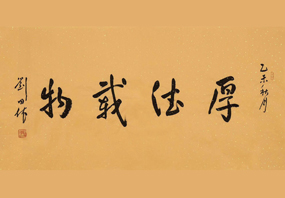 乙未秋月
厚德载物
劉田依